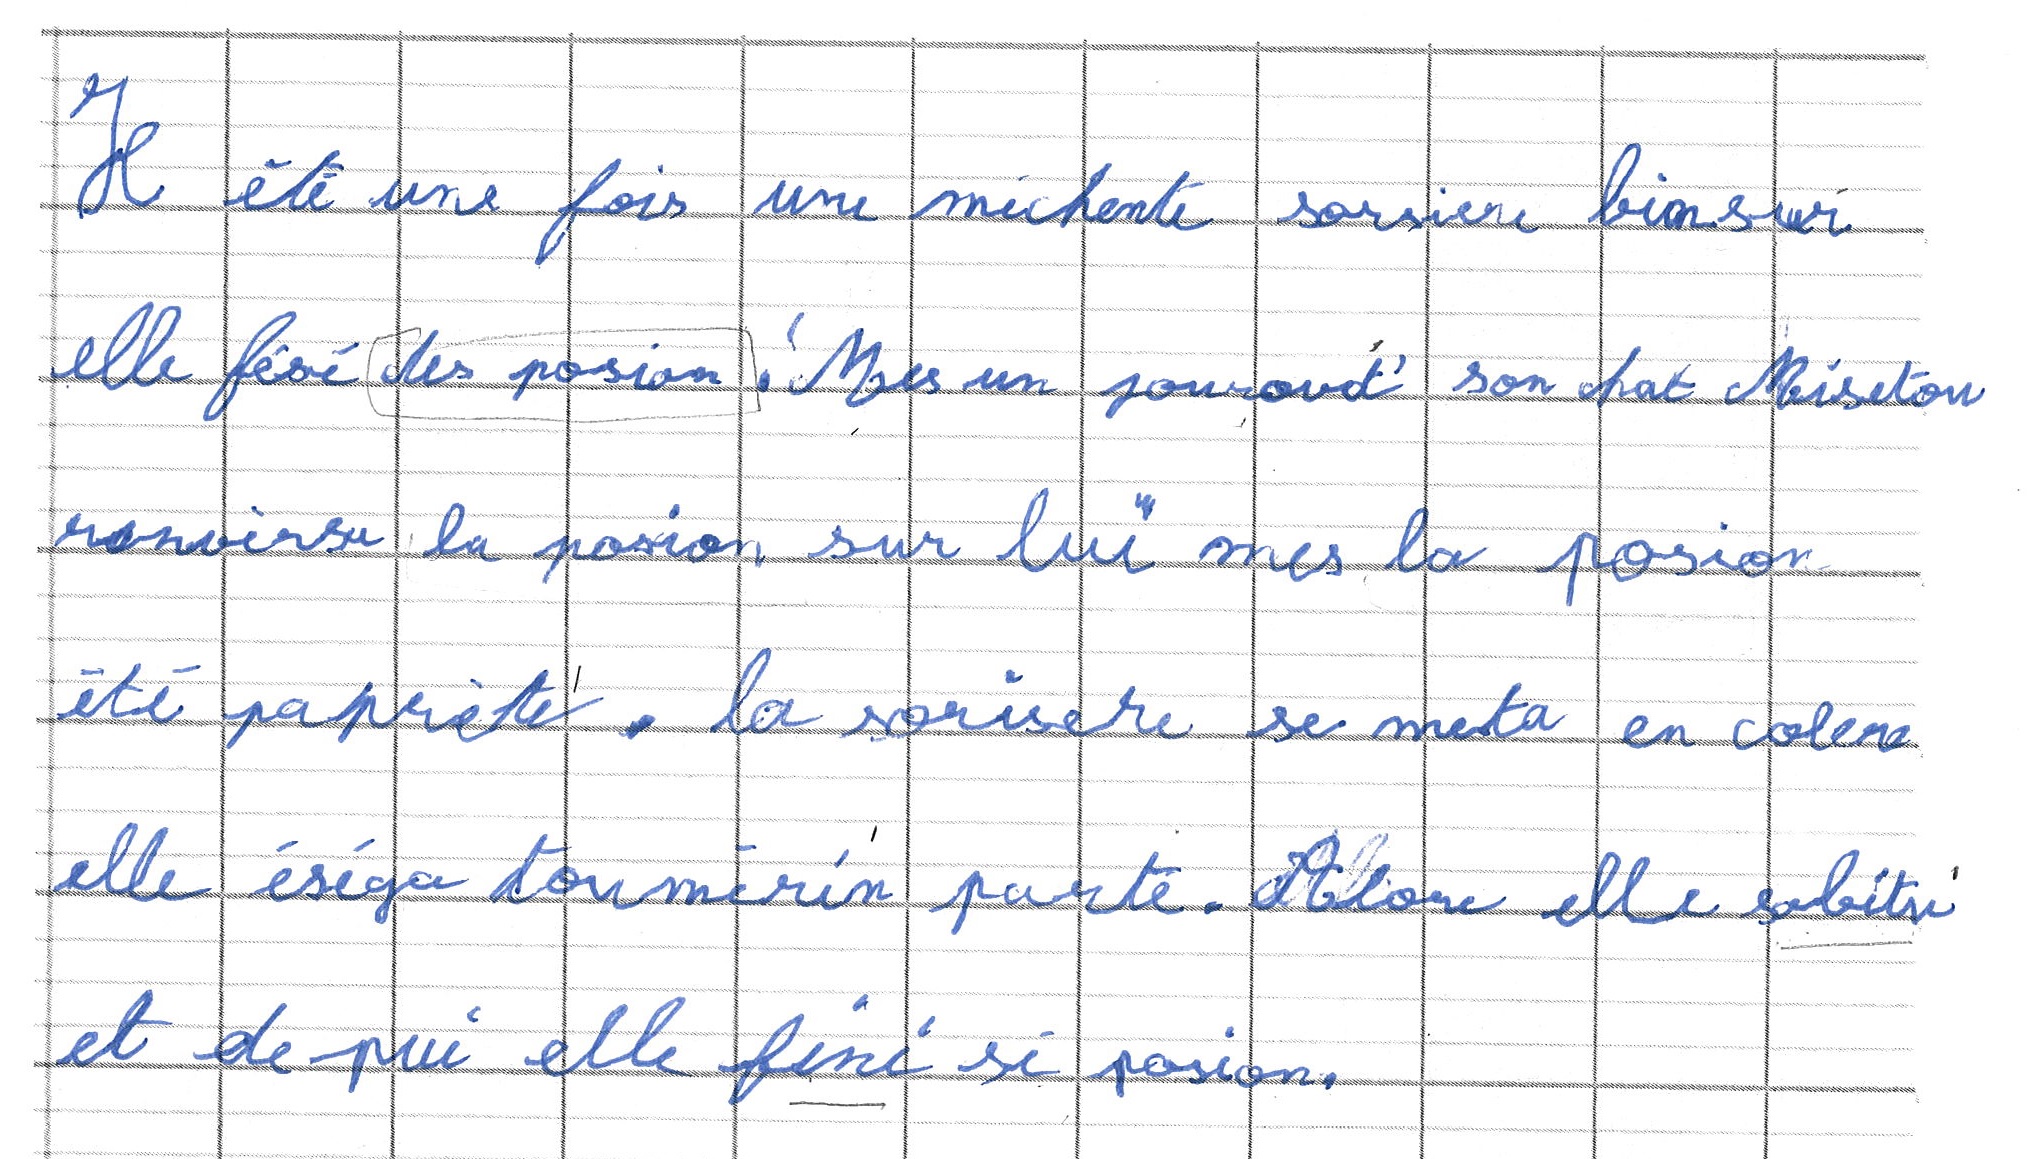 Il été une fois une méchente sorsiere biensur
elle fésé des posion. Mes un jour ou son chat Misetou
renverse la posion sur lui mes la posion
été paprète. la sorisere se meta en colere
elle éséga toumérin parté. Alore elle sabitu
et de pui elle fini sé posion.